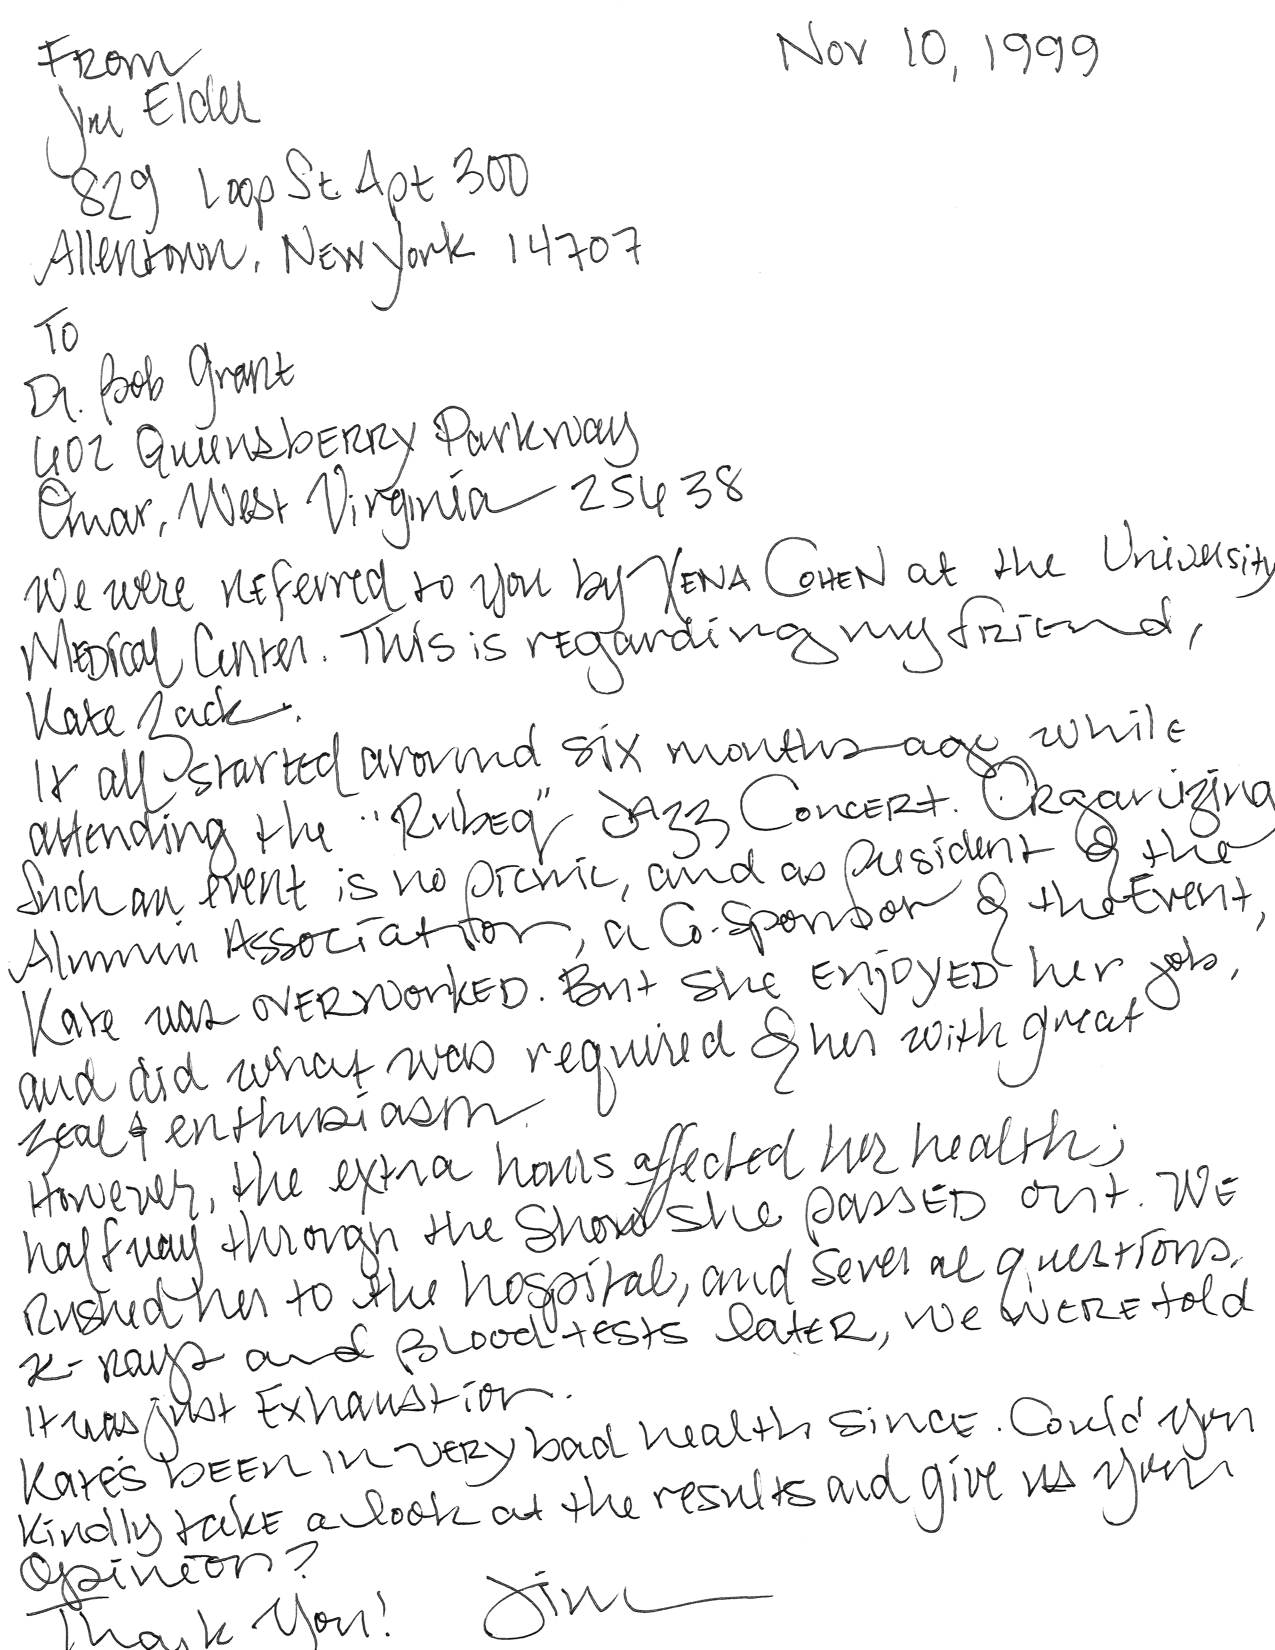 Nov 10, 1999
From
Jim Elder
829 Loop St. Apt 300
Allentown, New York 14707
To
Dr. Bob Grant
602 Queensberry Parkway
Omar, West Virginia 25638
We were referred to you by Xena Cohen at the University
Medical Center. This is regarding my friend,
Kate Zack.
It all started around six months ago while
attending the "Rubeq" Jazz Concert. Organizing
such an event is no picnic, and as president of the
Alumni Association, a co-sponsor of the event,
Kate was overworked. But she enjoyed her job,
and did what was required of her with great
zeal & enthusiasm.
However, the extra hours affected her health;
halfway through the show she passed out. We
rushed her to the hospital, and several questions,
x-rays and blood tests later, we were told
it was just exhaustion.
Kate's been in very bad health since. Could you
kindly take a look at the results and give us your
opinion?
Thank you! Jim